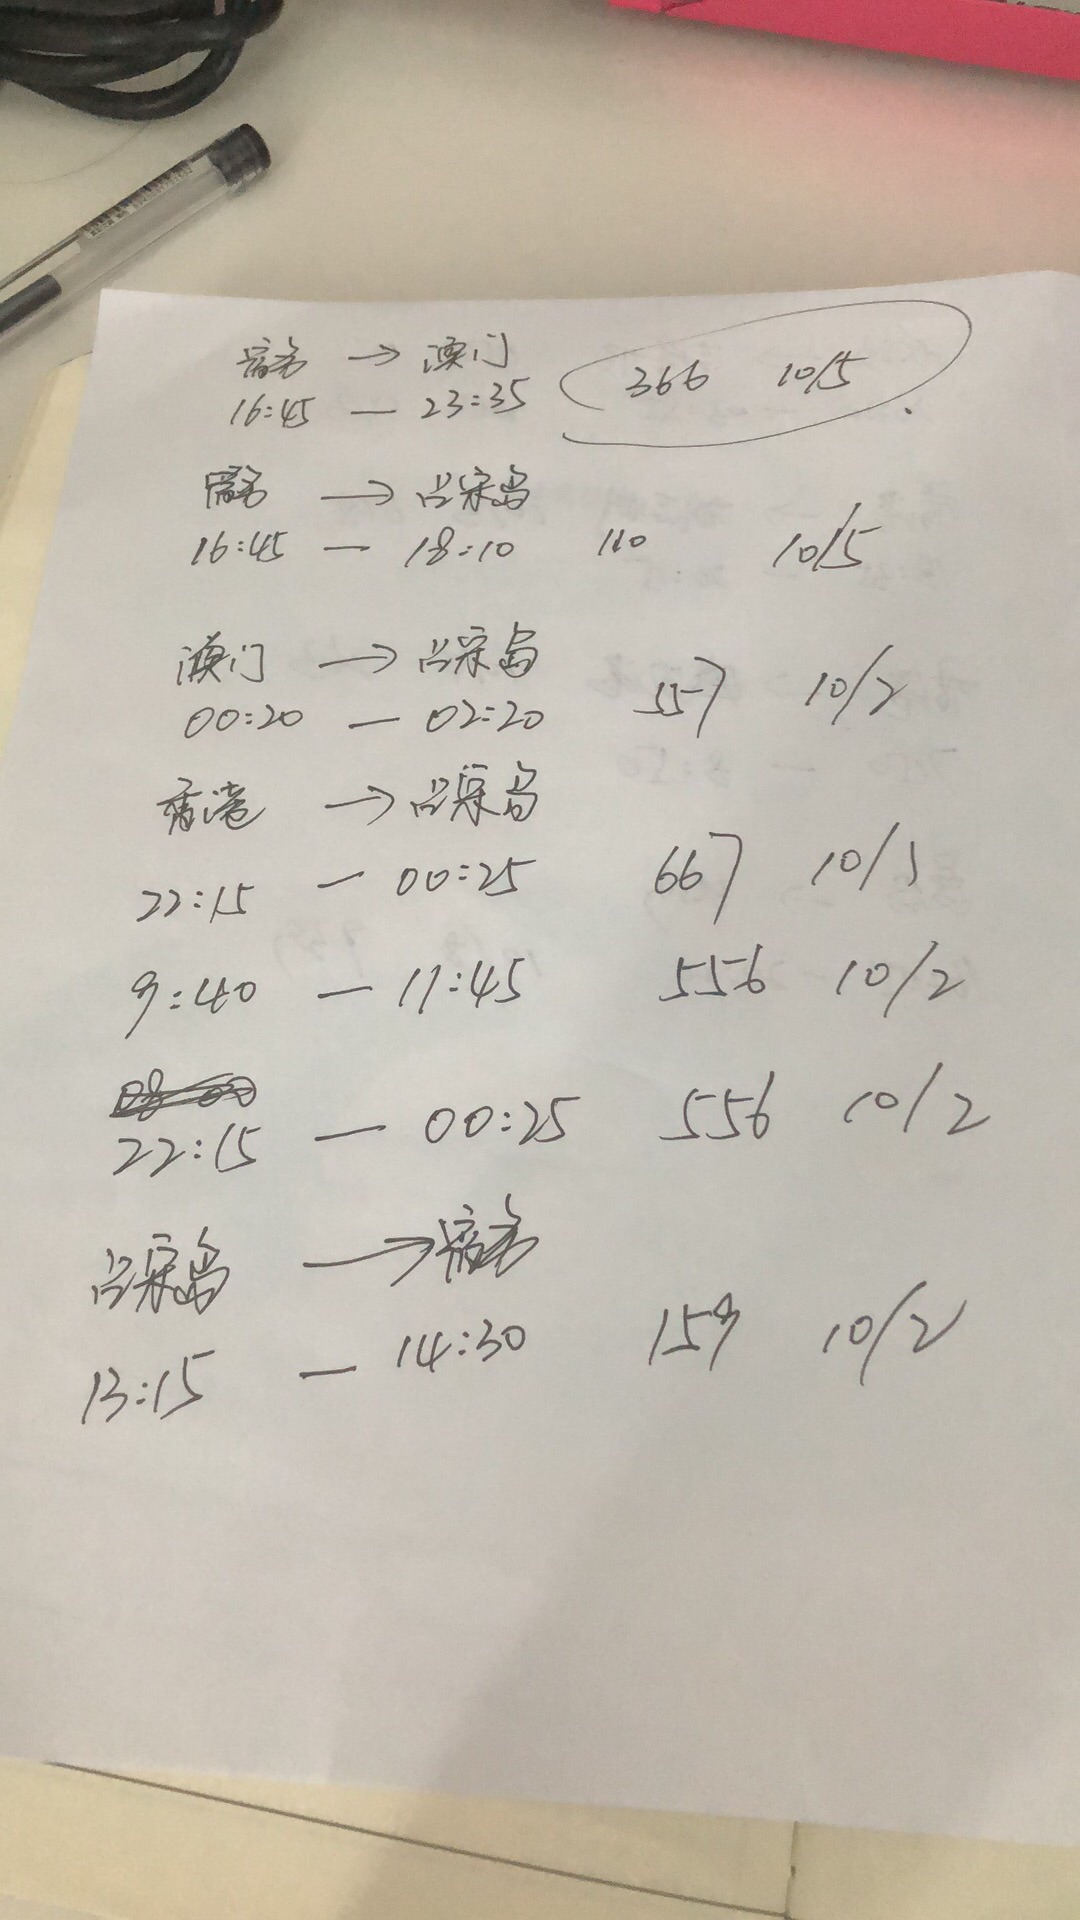 宿务 → 澳门
16:45 — 23:35 366 10/5
宿务 → 吕宋岛
16:45 — 18:10 110 10/5
澳门 → 吕宋岛
00:20 — 02:20 557 10/2
香港 → 吕宋岛
22:15 — 00:25 667 10/1
9:40 — 11:45 556 10/2
22:15 — 00:25 556 10/2
吕宋岛 → 宿务
13:15 — 14:30 159 10/2